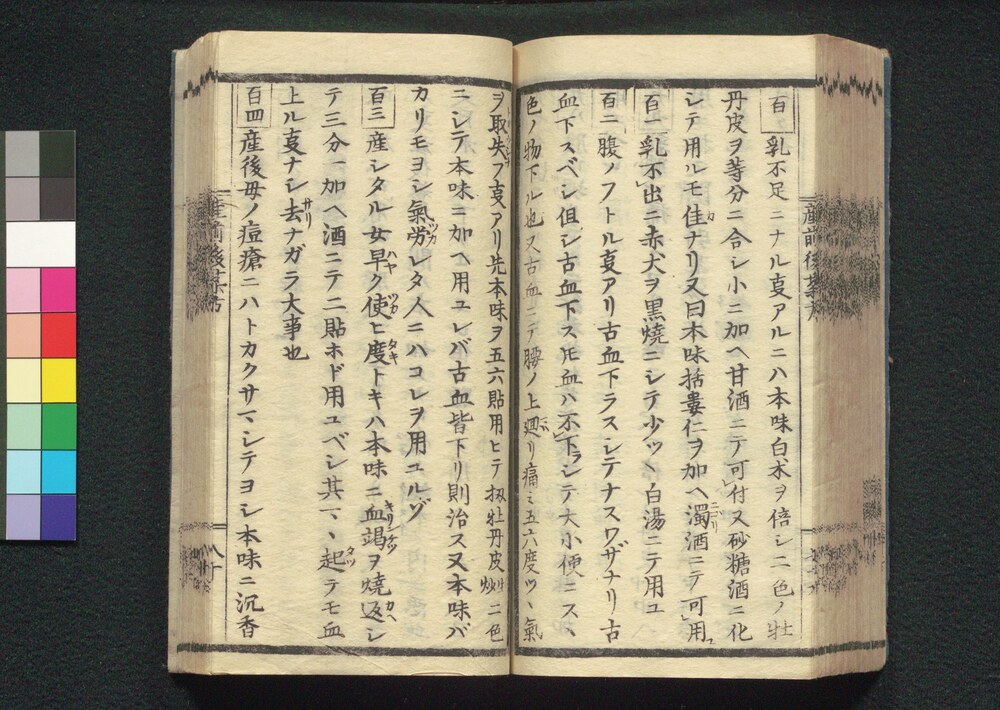 百 乳不足ニナル㕝アルニハ本味白朮ヲ倍シ二色ノ牡
丹皮ヲ等分ニ合シ小ニ加ヘ甘酒ニテ可付又砂糖酒ニ化
シテ用ルモ佳ナリ又曰本味括蔞仁ヲ加ヘ濁酒ニテ可用
百一 乳不出ニ赤犬ヲ黒焼ニシテ少ツヽ白湯ニテ用ユ
百二 腹ノフトル㕝アリ古血下ラスシテナスワザナリ古
血下スベシ但シ古血下スモ血ハ不下シテ大小便ニスヽ
色ノ物下ル也又古血ニテ腰ノ上廻リ痛ミ五六度ツヽ氣
ヲ取失フ㕝アリ先本味ヲ五六貼用ヒテ扨牡丹皮炒二色
ニシテ本味ニ加ヘ用ユレバ古血皆下リ則治ス又本味バ
カリモヨシ氣労レタ人ニハコレヲ用ユルゾ
百三 産シタル女早ク使ヒ度トキハ本味ニ血竭ヲ焼返シ
テ三分一加ヘ酒ニテ二貼ホド用ユベシ其マヽ起テモ血
上ル㕝ナシ去ナガラ大事也
百四 産後毋ノ痘瘡ニハトカクサマシテヨシ本味ニ沉香
産前後
八十